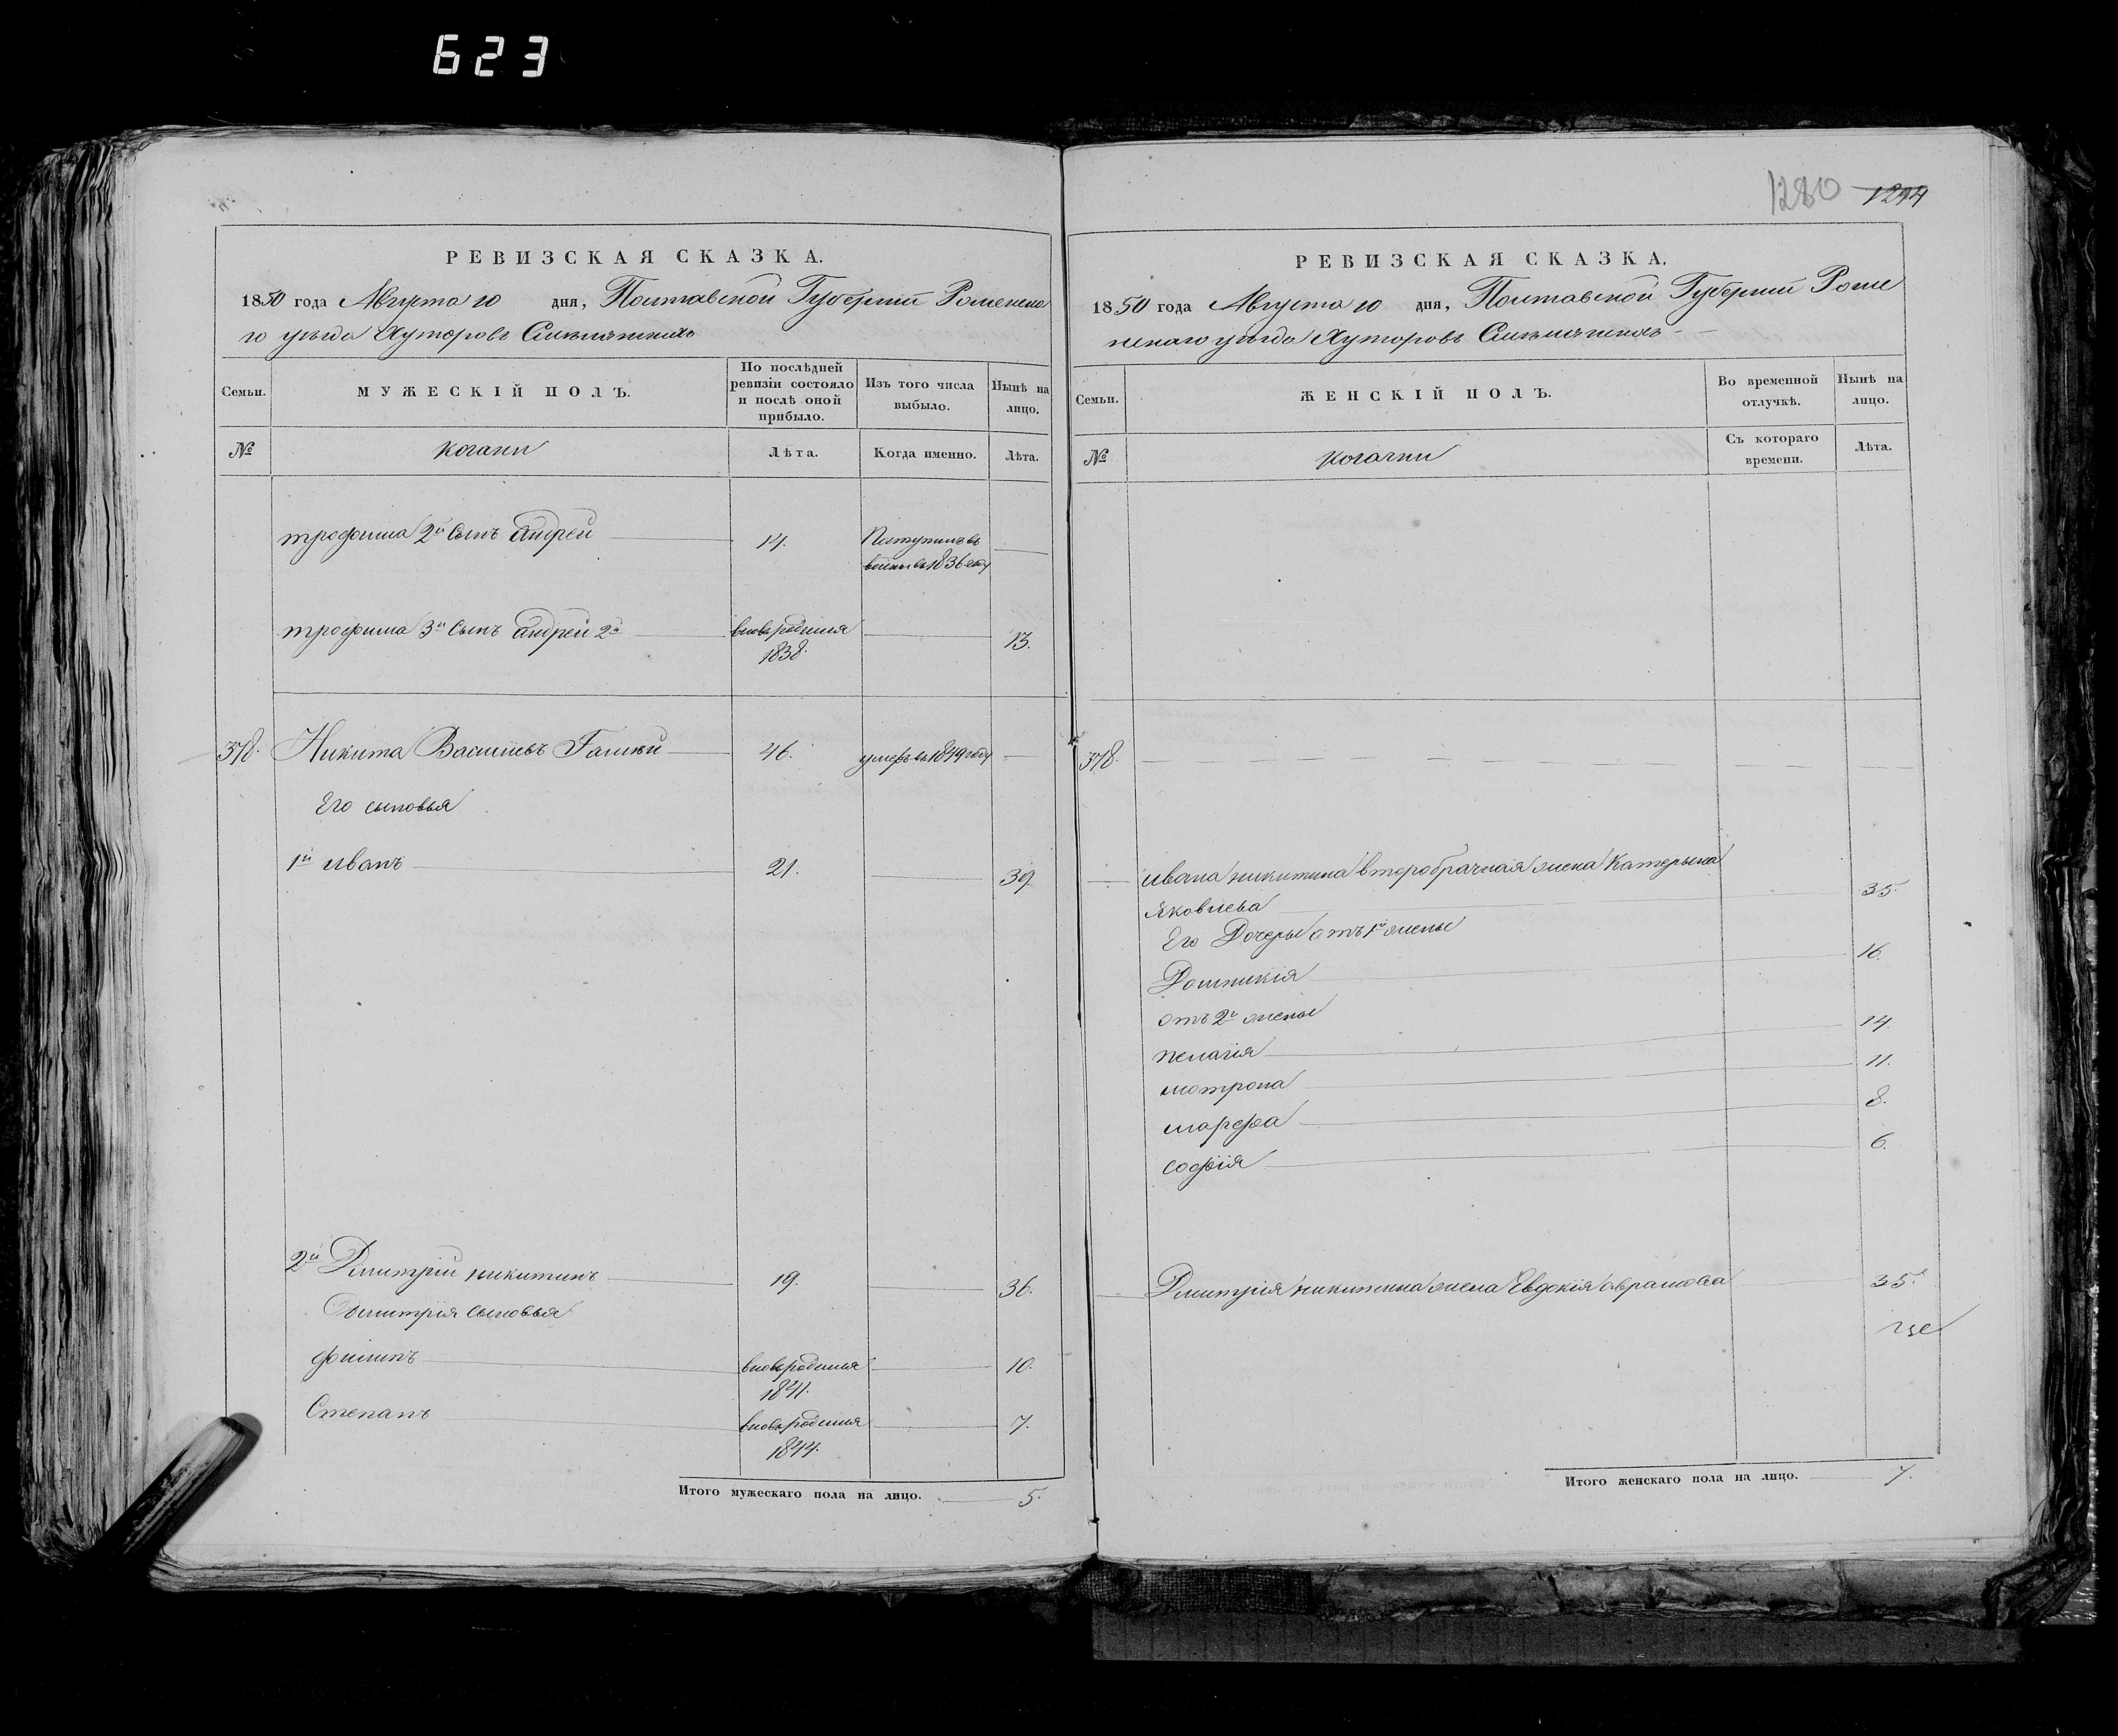 623
1280 1294
РЕВИЗСКАЯ СКАЗКА.
1850 года Августа 10 дня, Полтавской Губерніи Роменска
го уѣзда Хуторовъ
Семьи.
МУЖЕСКІЙ ПОЛЪ.
По послѣдней ревизіи состояло и послѣ оной прибыло.
Изъ того числа выбыло.
Нынѣ на лицо.
№
козаки
Лѣта.
Когда именно.
Лѣта.
трофима 2й Сынъ андрей 14.
въ 1836 году
трофима 3й Сынъ андрей 2й вновьродился 1838. 13.
378. Никита Васильевъ 46. умеръ въ 1849 году
Его сыновья
1й иванъ 21. 39
2й Дмитрій никитинъ 19. 36.
Дмитрія сыновья
филипъ вновьродился 1841. 10.
Степанъ вновьродился 1844. 7.
Итого мужескаго пола на лицо. 5.
РЕВИЗСКАЯ СКАЗКА.
1850 года Августа 10 дня, Полтавской Губерніи Роме
нскаго уѣзда Хуторовъ
Семьи.
ЖЕНСКІЙ ПОЛЪ.
Во временной отлучкѣ.
Нынѣ на лицо.
№
козачки
Съ котораго времени.
Лѣта.
378.
ивана никитина второбрачная жена Катерына
Яковлева 35.
Его Дочеры отъ 1й жены
Домникія 16.
отъ 2й жены
пелагія 14.
мотрона 11.
марефа 8.
софія 6.
Дмитрія никитина жена Евдокія аврамова 35.
Итого женскаго пола на лицо. 7.